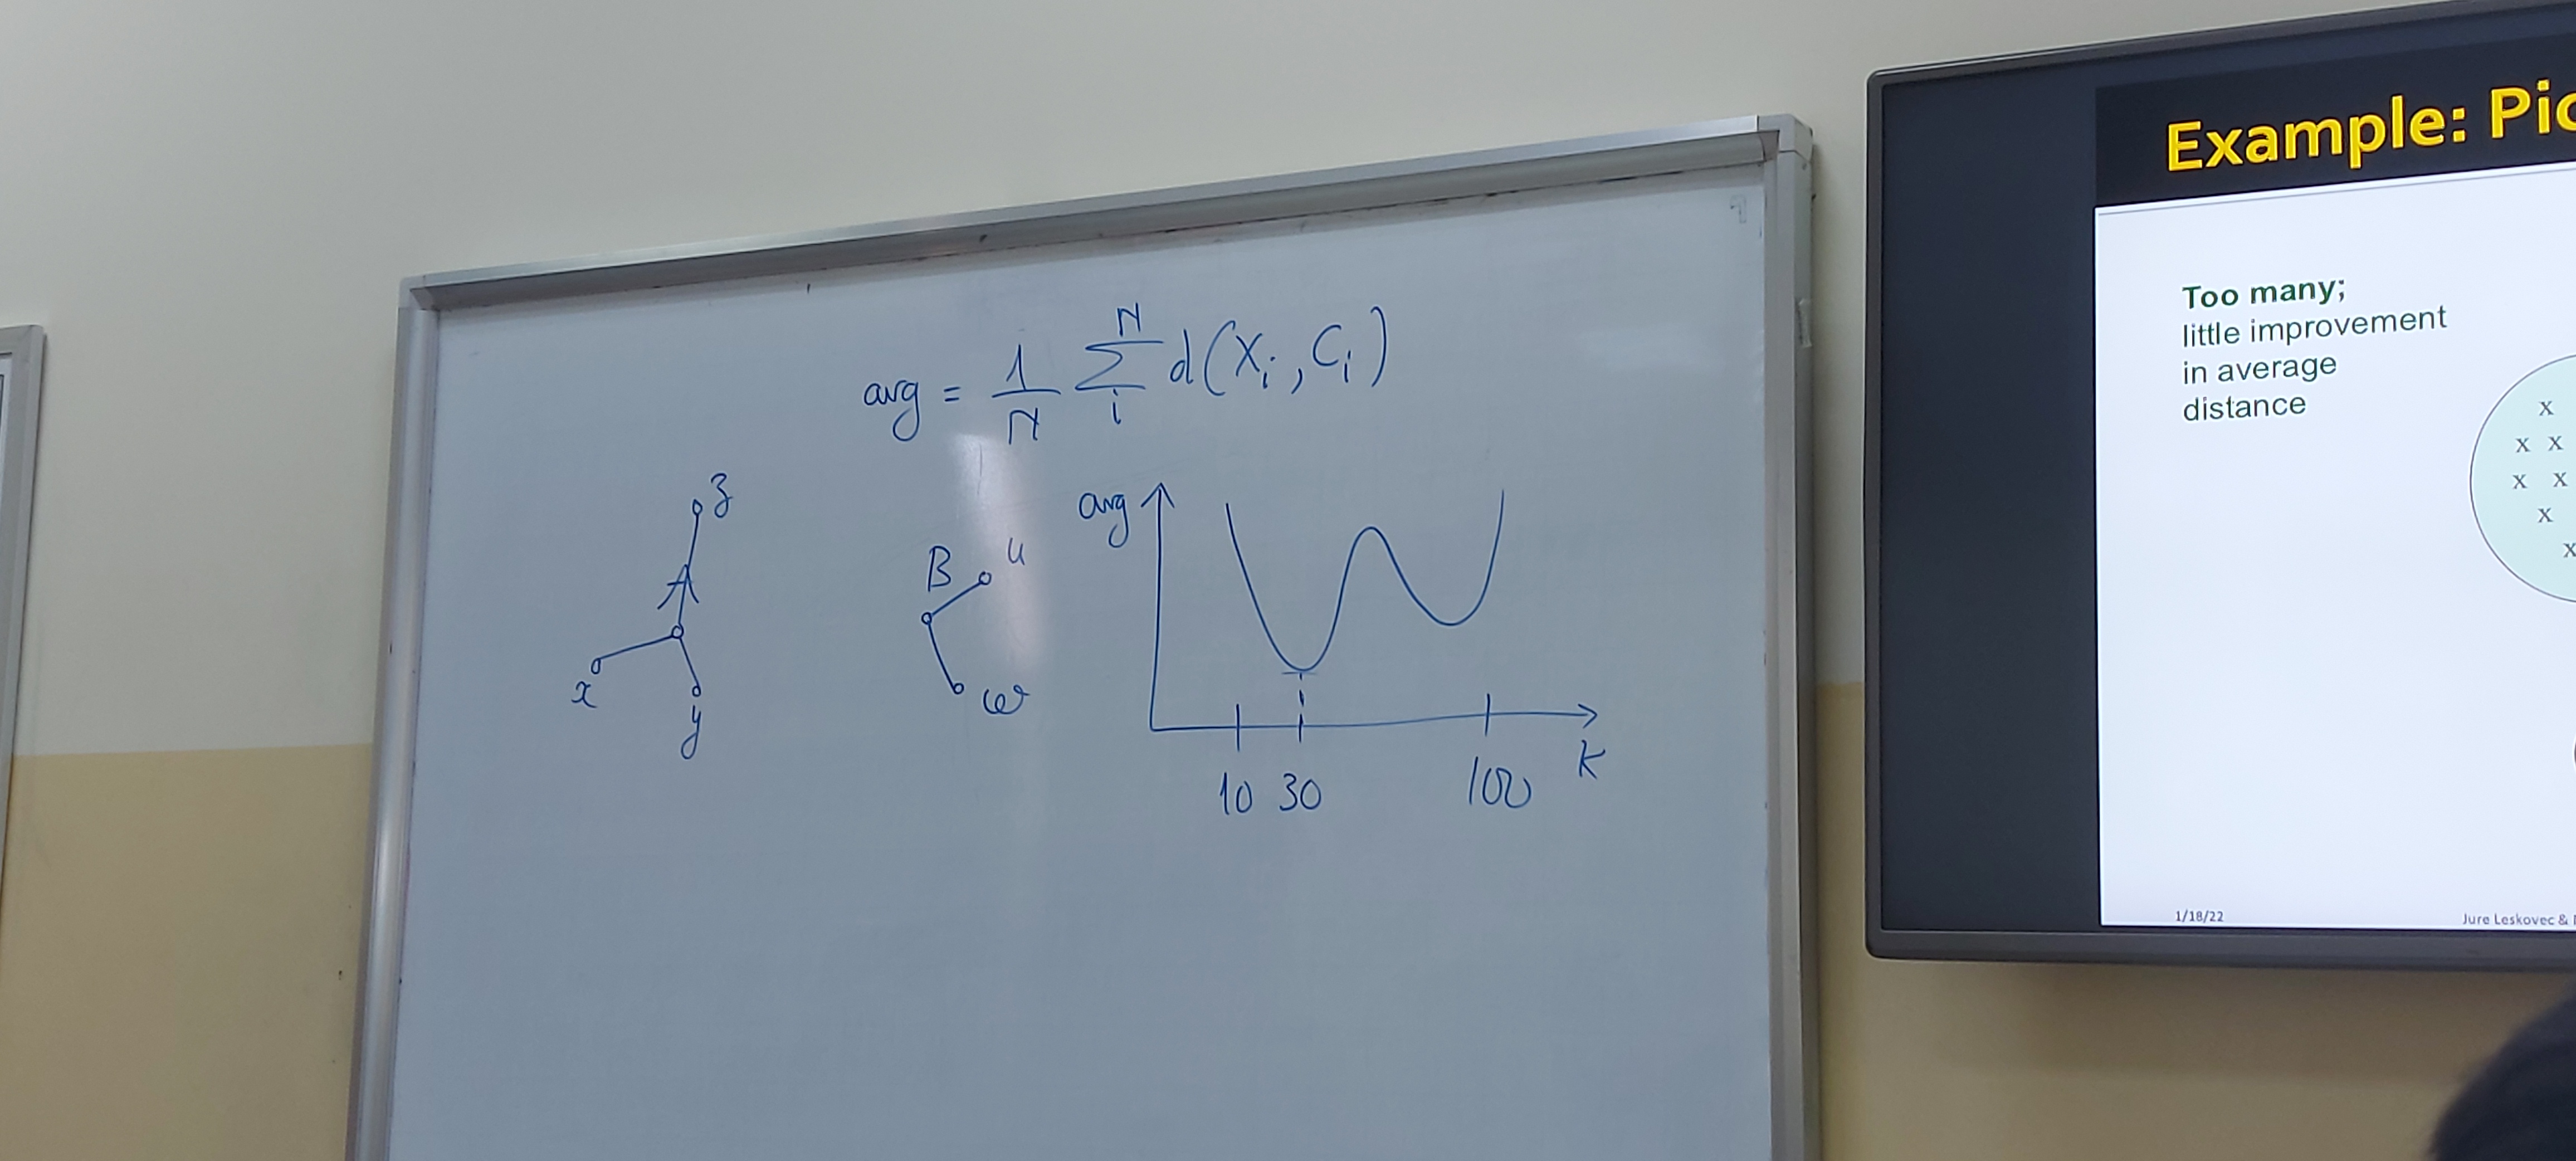 avg = 1/N Σ_i^N d(x_i, c_i)
z
A
x
y
B u
w
avg
10 30 100 k
Example: Pic
Too many;
little improvement
in average
distance
x
x x
x x
x
x
1/18/22
Jure Leskovec &